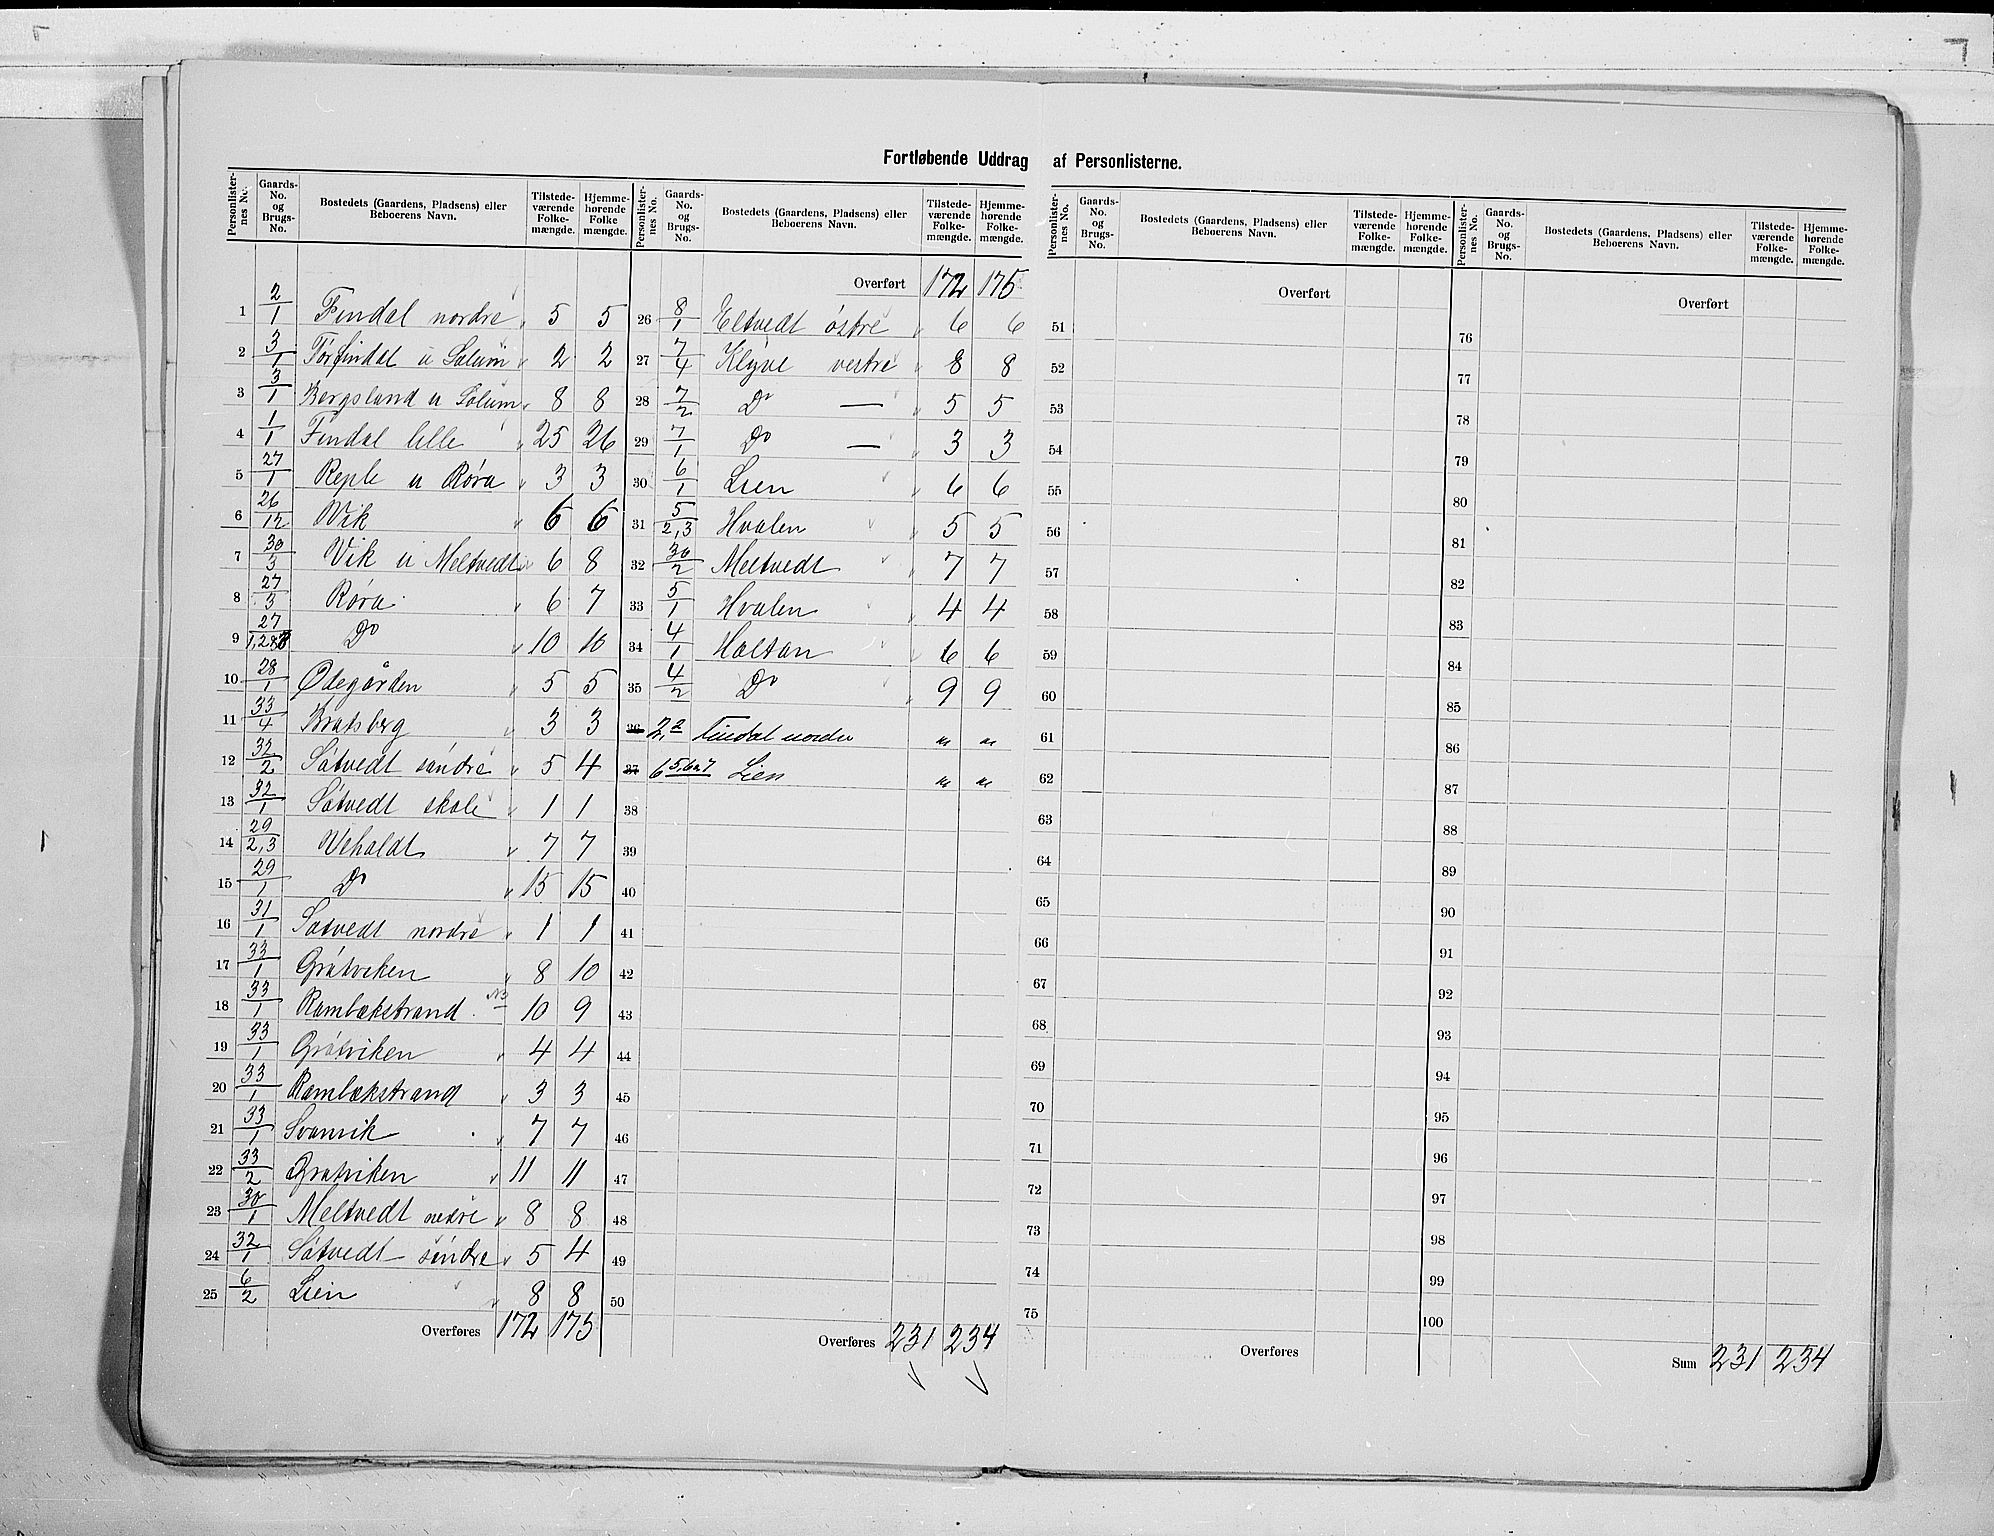 Fortløbende Uddrag af Personlisterne.
Personlister-nes No. Gaards-No. og Brugs-No. Bostedets (Gaardens, Pladsens) eller Beboerens Navn. Tilstede-værende Folke-mængde. Hjemme-hørende Folke mængde.
1 2/1 Findal nordre 5 5
2 3/1 Torfindal u Solum 2 2
3 3/1 Bergsland u Solum 8 8
4 1/1 Findal lille 25 26
5 27/1 Reple u Röra 3 3
6 26/12 Vik 6 6
7 30/3 Vik u Meltvedt 6 8
8 27/3 Röra 6 7
9 27 Do 10 10
10 28/1 Ødegården 5 5
11 33/4 Bratsberg 3 3
12 32/2 Sötvedt söndre 5 4
13 32/1 Sötvedt skole 1 1
14 29/2,3 Veholdt 7 7
15 29/1 Do 15 15
16 31/1 Sötvedt nordre 1 1
17 33/1 Gråtviken 8 10
18 33/1 Rambækstrand 10 9
19 33/1 Gråtviken 4 4
20 33/1 Rambækstrand 3 3
21 33/1 Svanvik 7 7
22 33/2 Gråtviken 11 11
23 30/1 Meltvedt nedre 8 8
24 32/1 Sötvedt söndre 5 4
25 6/2 Lien 8 8
Overføres 172 175
Personlister-nes No. Gaards-No. og Brugs-No. Bostedets (Gaardens, Pladsens) eller Beboerens Navn. Tilstede-værende Folke-mængde. Hjemme-hørende Folke-mængde.
Overført 172 175
26 8/1 Eltvedt östre 6 6
27 7/4 Klyve vestre 8 8
28 7/2 Do — 5 5
29 7/1 Do — 3 3
30 6/1 Lien 6 6
31 5/2,3 Hvalen 5 5
32 30/2 Meltvedt 7 7
33 5/1 Hvalen 4 4
34 4/1 Haltan 6 6
35 4/2 Do 9 9
36 2,2 Findal nordre " "
37 6 5,6 o 7 Lien " "
38
39
40
41
42
43
44
45
46
47
48
49
50
Overføres 231 234
Personlister-nes No. Gaards-No. og Brugs-No. Bostedets (Gaardens, Pladsens) eller Beboerens Navn. Tilstede-værende Folke-mængde. Hjemme-hørende Folke-mængde.
Overført
51
52
53
54
55
56
57
58
59
60
61
62
63
64
65
66
67
68
69
70
71
72
73
74
75
Overføres
Personlister-nes No. Gaards-No. og Brugs-No. Bostedets (Gaardens, Pladsens) eller Beboerens Navn. Tilstede-værende Folke-mængde. Hjemme-hørende Folke-mængde.
Overført
76
77
78
79
80
81
82
83
84
85
86
87
88
89
90
91
92
93
94
95
96
97
98
99
100
Sum 231 234